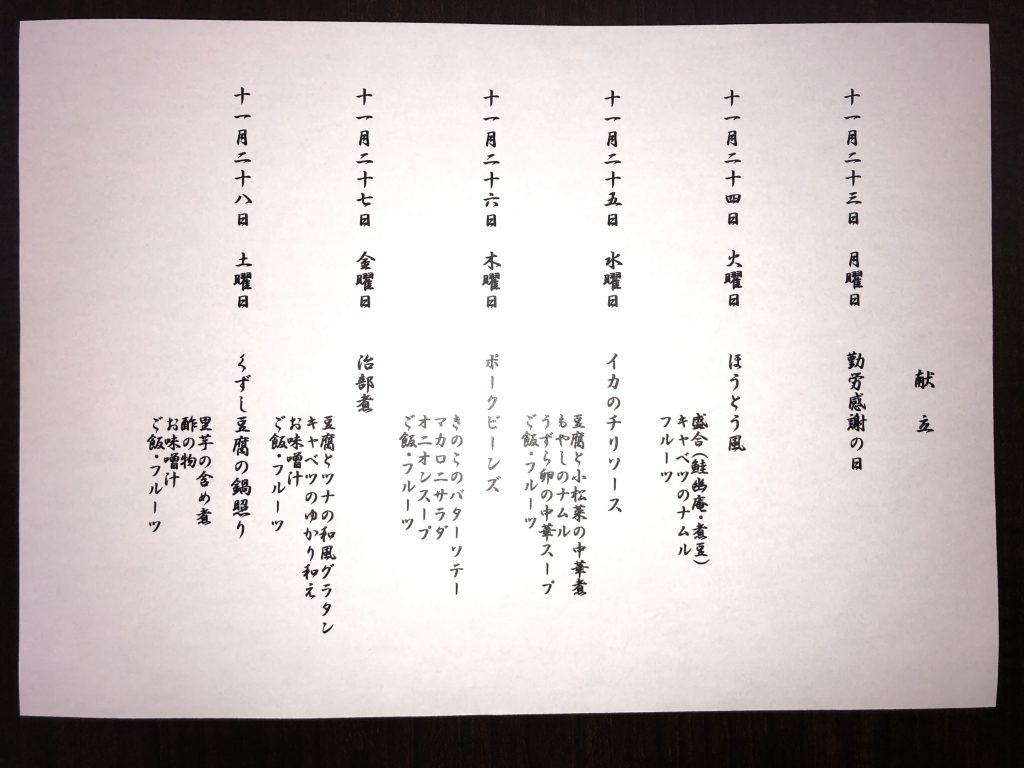 献立
十一月二十三日 月曜日 勤労感謝の日
十一月二十四日 火曜日 ほうとう風
盛合(鮭幽庵・煮豆)
キャベツのナムル
フルーツ
十一月二十五日 水曜日 イカのチリソース
豆腐と小松菜の中華煮
もやしのナムル
うずら卵の中華スープ
ご飯・フルーツ
十一月二十六日 木曜日 ポークビーンズ
きのこのバターソテー
マカロニサラダ
オニオンスープ
ご飯・フルーツ
十一月二十七日 金曜日 治部煮
豆腐とツナの和風グラタン
キャベツのゆかり和え
お味噌汁
ご飯・フルーツ
十一月二十八日 土曜日 くずし豆腐の鍋照り
里芋の含め煮
酢の物
お味噌汁
ご飯・フルーツ